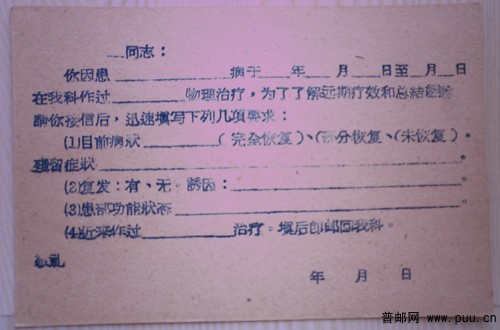 ____同志：
你因患____________病于____年____月____日至____月____日
在我科作过________物理治疗，为了了解远期疗效和总结经验
请你接信后，迅速填写下列几项要求：
(1)目前病状________(完全恢复)、(部分恢复)、(未恢复)。
残留症状____________________。
(2)复发：有、无。誘因：____________________。
(3)患部功能状态____________________。
(4)近来作过__________治疗。填后即邮回我科。
此礼
年 月 日
普邮网 www.puu.cn